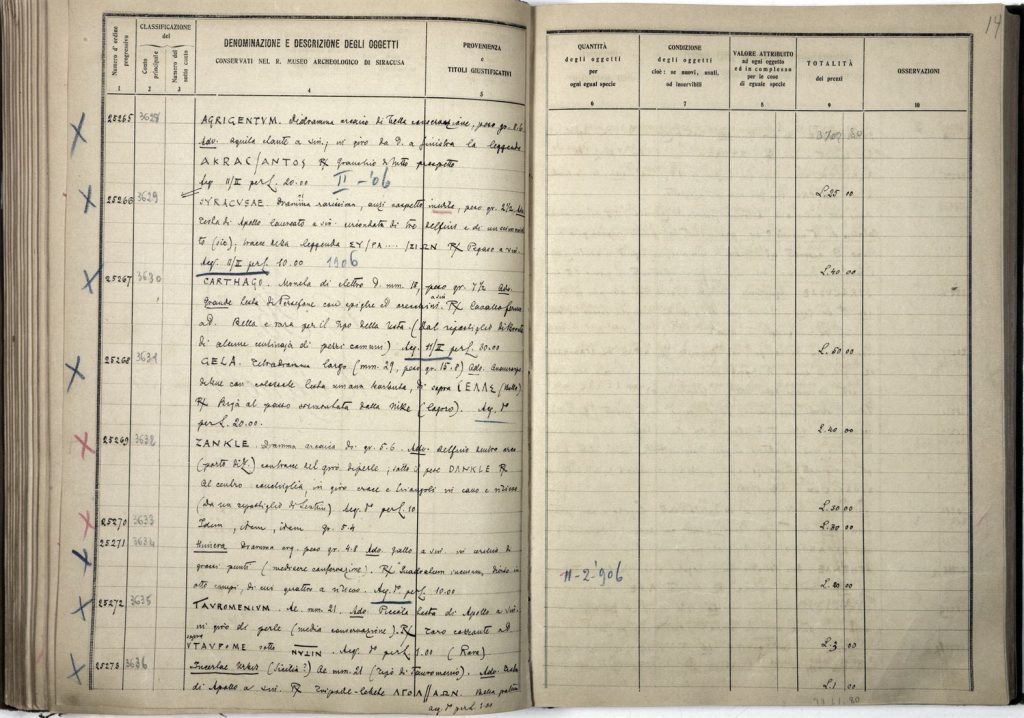 14
Numero d' ordine progressivo
CLASSIFICAZIONE
del
Conto principale
Numero del sotto conto
DENOMINAZIONE E DESCRIZIONE DEGLI OGGETTI
CONSERVATI NEL R. MUSEO ARCHEOLOGICO DI SIRACUSA
PROVENIENZA
e
TITOLI GIUSTIFICATIVI
QUANTITÀ
degli oggetti
per
ogni egual specie
CONDIZIONE
degli oggetti
cioè: se nuovi, usati,
od inservibili
VALORE ATTRIBUITO
ad ogni oggetto
ed in complesso
per le cose
di eguale specie
TOTALITÀ
dei prezzi
OSSERVAZIONI
1 2 3 4 5 6 7 8 9 10
25265 3628 AGRIGENTVM. Didramma arcaico di bella conservazione, peso gr. 8.6
Adv. aquila stante a sin., in giro da D. a sinistra la leggenda
AKRAC/ANTOS R/ Granchio di tutto prospetto
Acq. 11/II per L. 20.00 II - '06
L. 25 00
25266 3629 SYRACVSAE. Dramma rarissima, anzi sospetto inedita, peso gr. 2 1/2 Adv.
Testa di Apollo laureato a sin. circondata di tre delfini e di un
to (sic); tracce della leggenda ΣΥ/ΡΑ.... /ΣΙΩΝ R/ Pegaso a sin.
Acq. 11/II per L. 10.00 1906
L. 40 00
25267 3630 CARTHAGO. Moneta di elettro D. mm. 18, peso gr. 7 1/2 Adv.
Grande testa di Persefone con spighe ed orecchini a sin. R/ Cavallo fermo
a D. Bella e rara per il tipo della testa. (Dal ripostiglio di
di alcune centinaja di pezzi comuni) Acq. 11/II per L. 30.00
L. 50 00
25268 3631 GELA. Tetradramma largo (mm. 29, peso gr. 15.8) Adv.
con colossale testa umana barbuta, di sopra
R/ Biga al passo coronata dalla Nike (logoro). Acq. 1a
per L. 20.00.
L. 40 00
25269 3632 ZANKLE. Dramma arcaica di gr. 5.6. Adv. Delfino dentro arco
(porto di Z.) sotto il pesce DANKLE R/
Al centro conchiglia, in giro
(Da un ripostiglio di Lentini) Acq. 1a per L. 10
L. 30 00
25270 3633 Idem, idem, idem gr. 5.4
L. 30 00
25271 3634 Himera Dramma arg. peso gr. 4.8 Adv. Gallo a sin. in cerchio di
grossi punti (mediocre conservazione). R/ Quadratum incusum, diviso in
otto campi, di cui quattro a rilievo. Acq. 1a per L. 10.00
11-2-'906
L. 20 00
25272 3635 TAVROMENIVM. Ae. mm. 21. Adv. Piccola testa di Apollo a sin.
in giro di perle (media conservazione). R/ Toro cozzante a D.
sopra ΤΑΥΡΟΜΕ sotto ΝΥΖΙΝ. Acq. 1a per L. 1.00 (Rara)
L. 3 00
25273 3636 Incertae Urbis (Sicilia?) Ae mm. 21 (Tipo di Tauromenio). Adv. Testa
di Apollo a sin. R/ Tripode-lebete ΑΠΟΛ//ΑΩΝ. Bella patina
acq. 1a per L. 1.00
L. 1 00